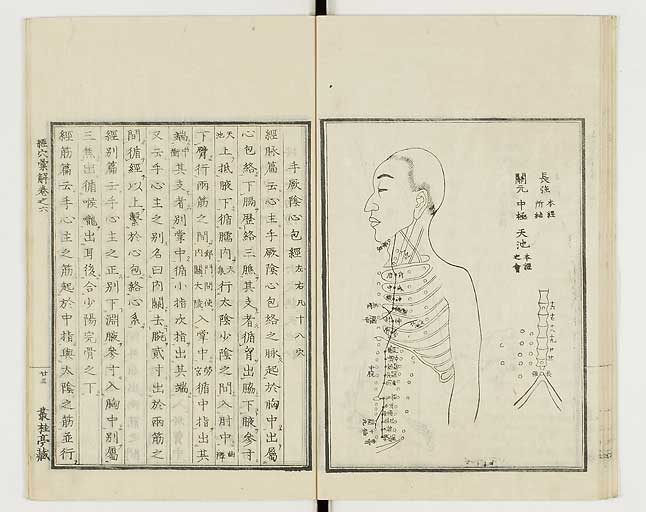 長强 本經所結
關元 中極 天池 本經之會
手厥陰心包經 左右凡十八穴
經脉篇云心主手厥陰心包絡之脉起於胸中出屬
心包絡下膈歷絡三膲其支者循胷出脇下腋參寸
天池上抵腋下循臑內天泉行太陰少陰之間入肘中曲澤
下臂行兩筋之間郄門間使內關大陵入掌中勞宮循中指出其
端中衝其支者別掌中循小指次指出其端
又云手心主之別名曰內關去腕貳寸出於兩筋之
間循經以上繫於心包絡心系
經別篇云手心主之正別下淵腋參寸入胸中別屬
三焦出循喉嚨出耳後合少陽完骨之下
經筋篇云手心主之筋起於中指與太陰之筋並行
經穴彙解卷之六
廿三
叢桂亭藏